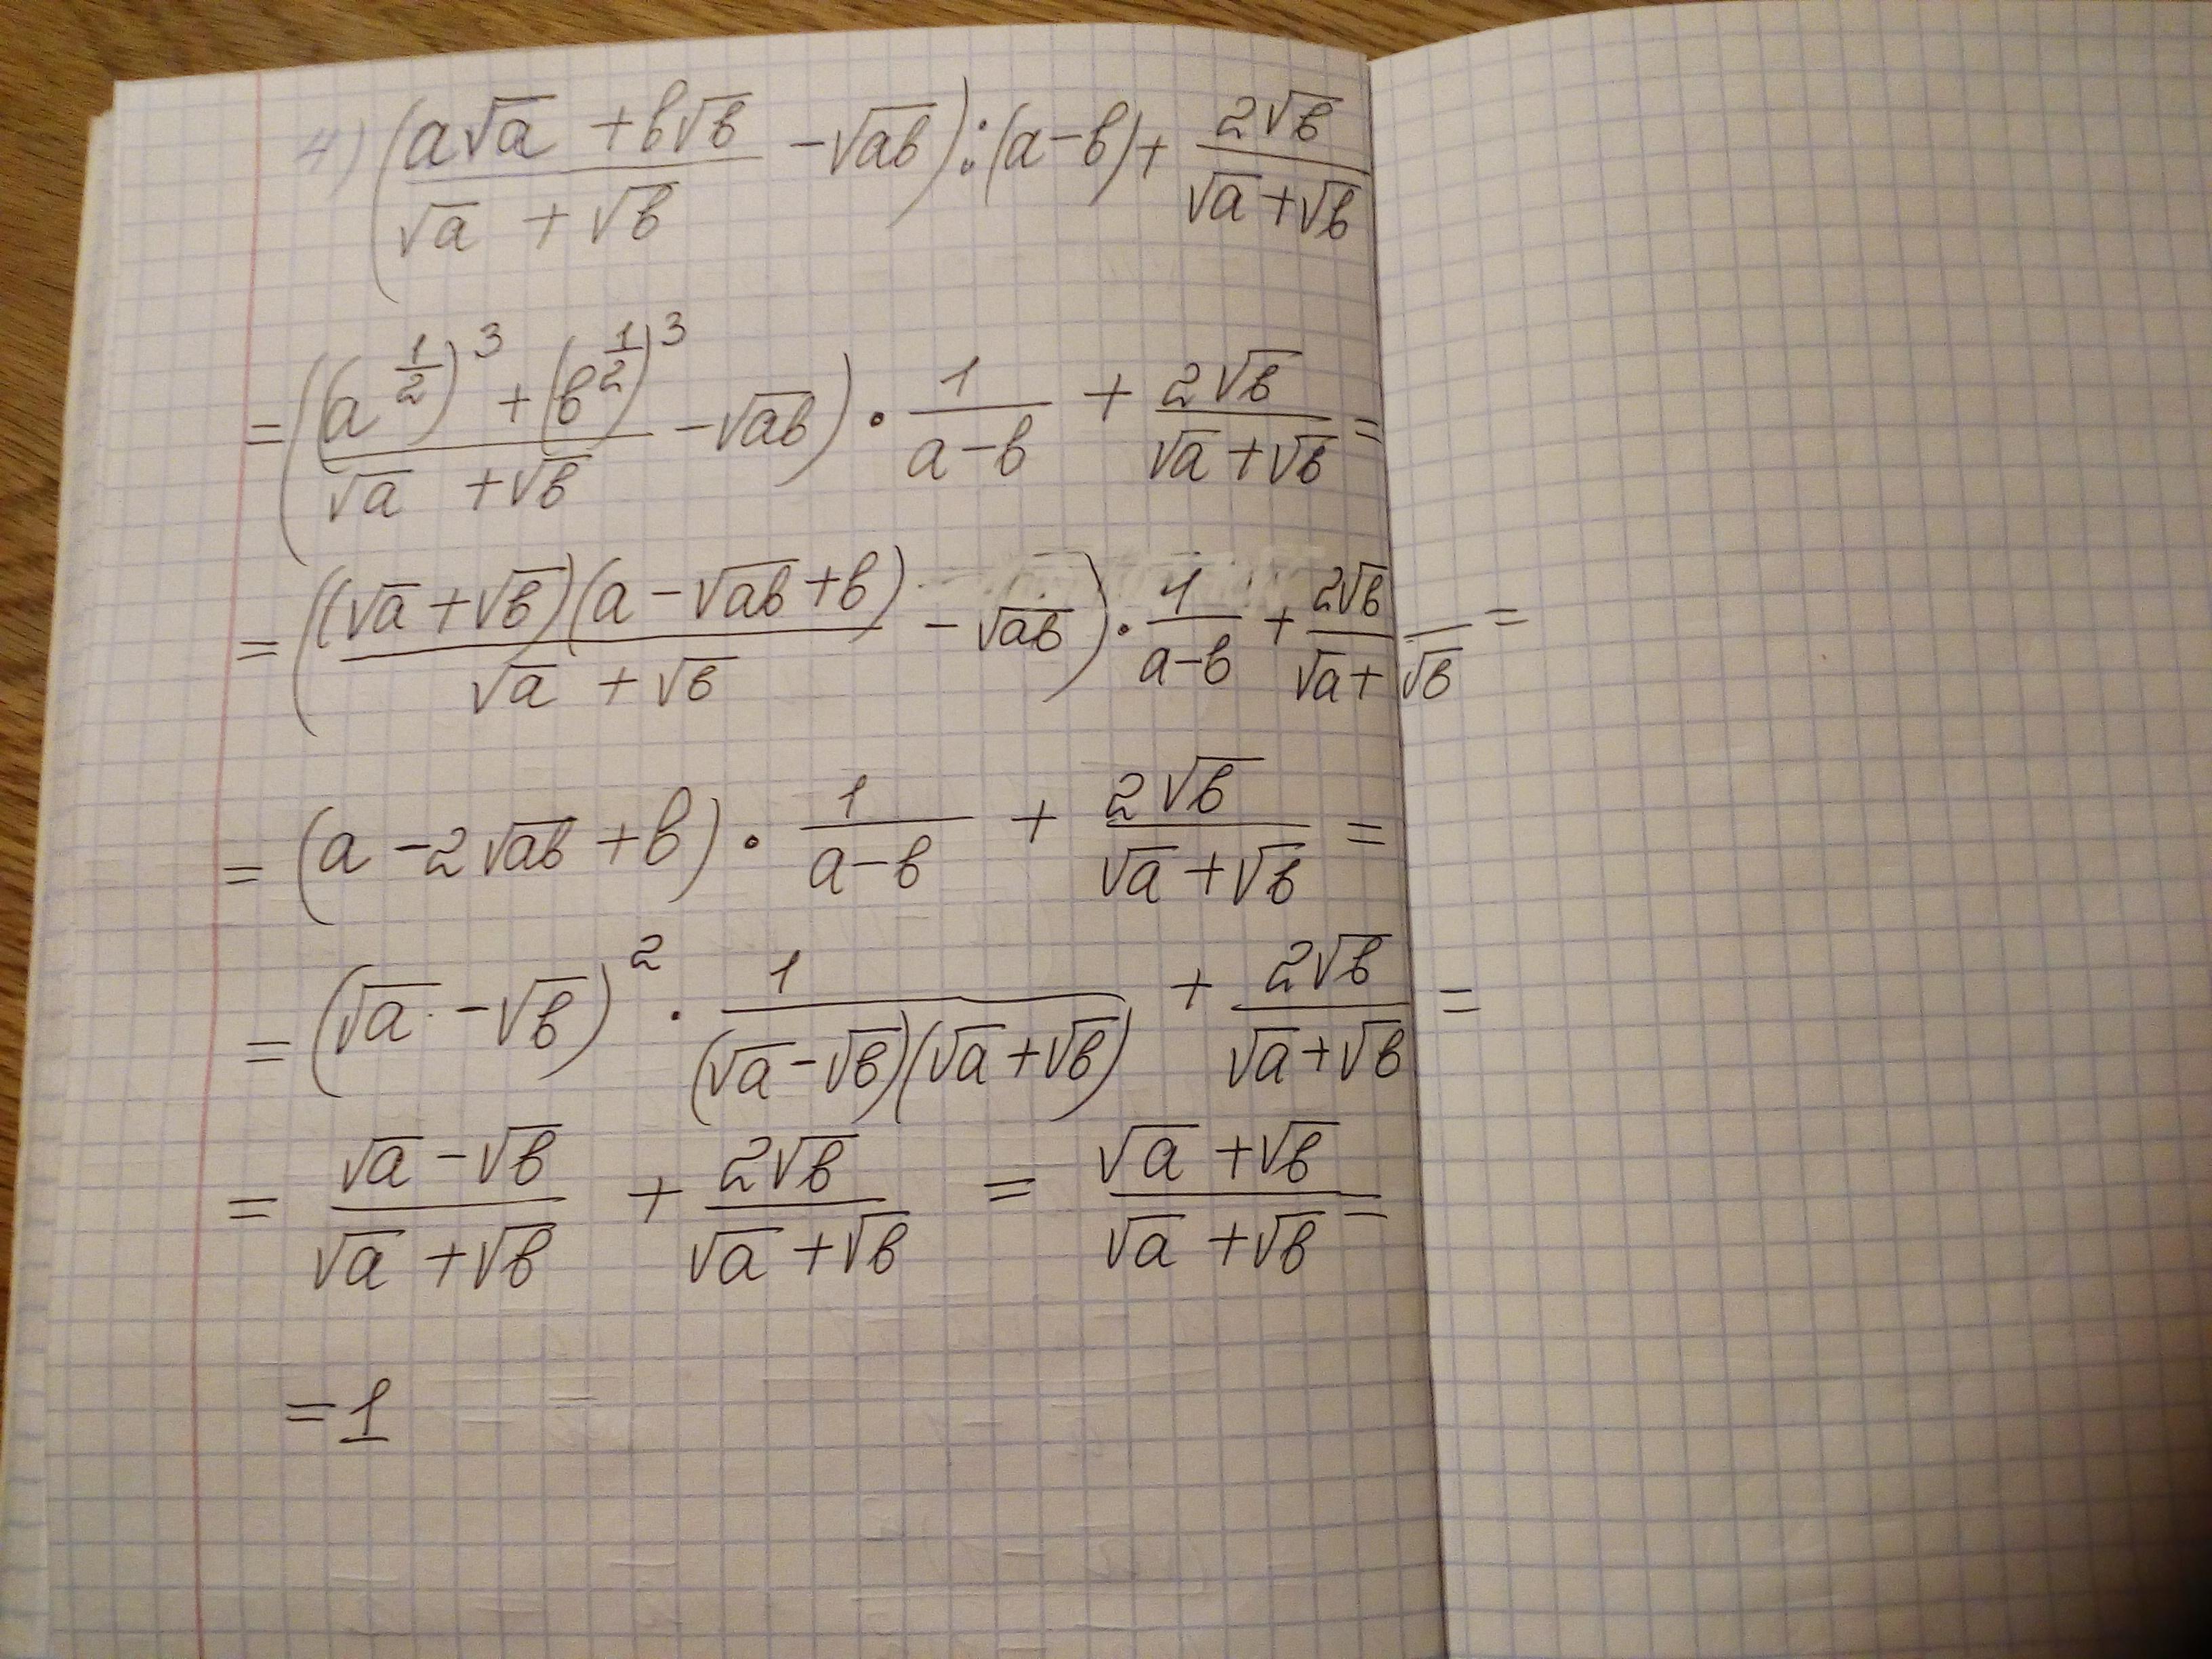 4) ((a√a + b√b)/(√a + √b) − √ab) : (a − b) + 2√b/(√a + √b)
= (((a^(1/2))^3 + (b^(1/2))^3)/(√a + √b) − √ab) · 1/(a − b) + 2√b/(√a + √b) =
= (((√a + √b)(a − √ab + b))/(√a + √b) − √ab) · 1/(a − b) + 2√b/(√a + √b) =
= (a − 2√ab + b) · 1/(a − b) + 2√b/(√a + √b) =
= (√a − √b)^2 · 1/((√a − √b)(√a + √b)) + 2√b/(√a + √b) =
= (√a − √b)/(√a + √b) + 2√b/(√a + √b) = (√a + √b)/(√a + √b) =
= 1